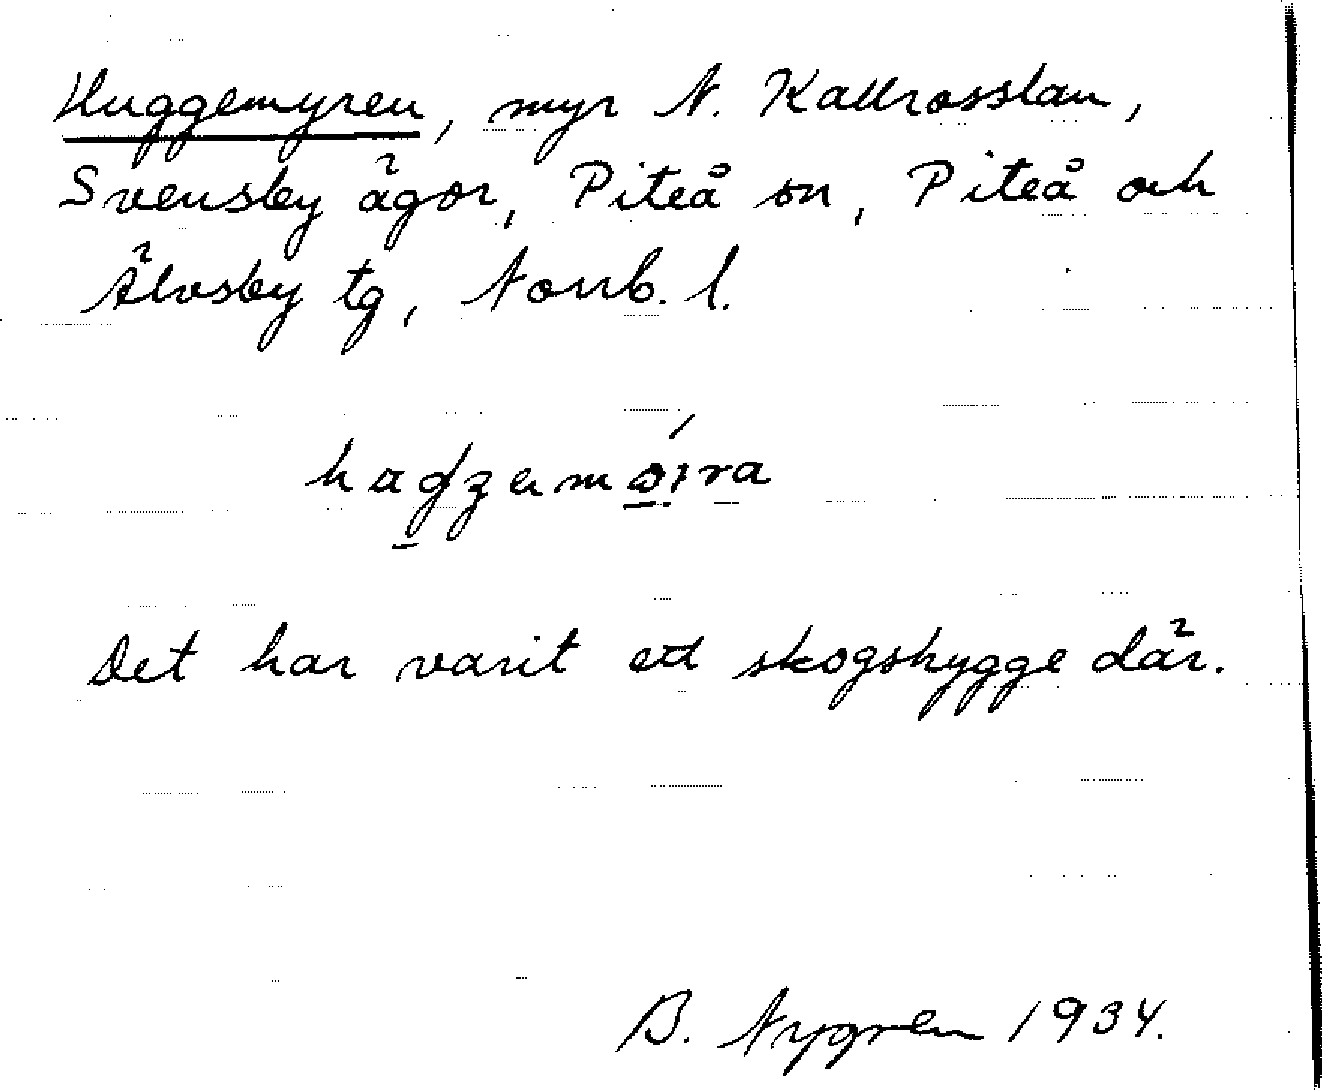 Huggemyren, myr N. Kallrosslan,
Svensby ägor, Piteå sn, Piteå och
Älvsby tg, Norrb. l.
Det har varit ett skogshygge där.
B. Nygren 1934.